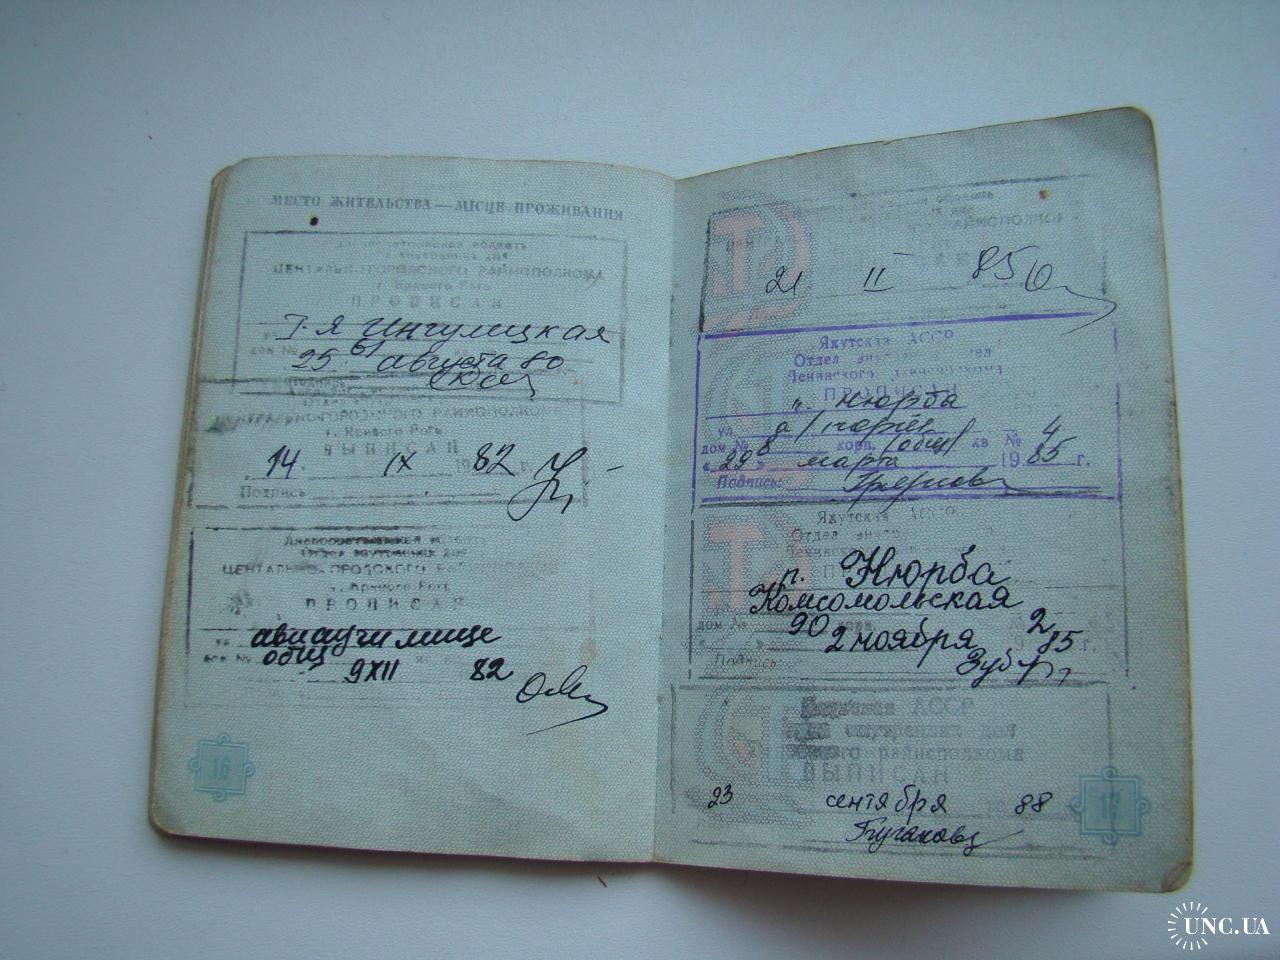 МЕСТО ЖИТЕЛЬСТВА — МІСЦЕ ПРОЖИВАННЯ
ЦЕНТРАЛЬНОГОРОДСКОГО РАЙИСПОЛКОМА
г. Кривого Рога
ПРОПИСАН
Ингулецкая
25 августа 80
ЦЕНТРАЛЬНОГОРОДСКОГО РАЙИСПОЛКОМА
г. Кривого Рога
ВЫПИСАН
14 IX 1982 г.
Подпись
Днепропетровская область
Отдел внутренних дел
ЦЕНТРАЛЬНОГОРОДСКОГО РАЙИСПОЛКОМА
г. Кривого Рога
ПРОПИСАН
авиаучилище
общ
9 XII 82
16
21 II 85
Якутская АССР
Отдел
Ленинского райисполкома
ПРОПИСАН
п. Нюрба
ул. а/порт
дом № 8 корп. (общ) кв № 4
«29» марта 1985 г.
Подпись:
Якутская АССР
Отдел
п. Нюрба
Комсомольская
дом № 90 2
2 ноября 85 г.
Подпись:
Якутская АССР
внутренних дел
райисполкома
ВЫПИСАН
23 сентября 1988
17
UNC.UA